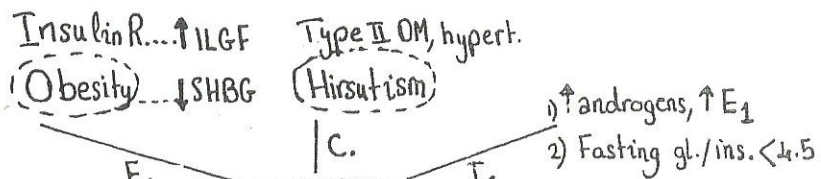 Insulin R....↑ILGF Type II DM, hypert.
Obesity....↓SHBG Hirsutism
1) ↑androgens, ↑E1
C.
2) Fasting gl./ins.<4.5